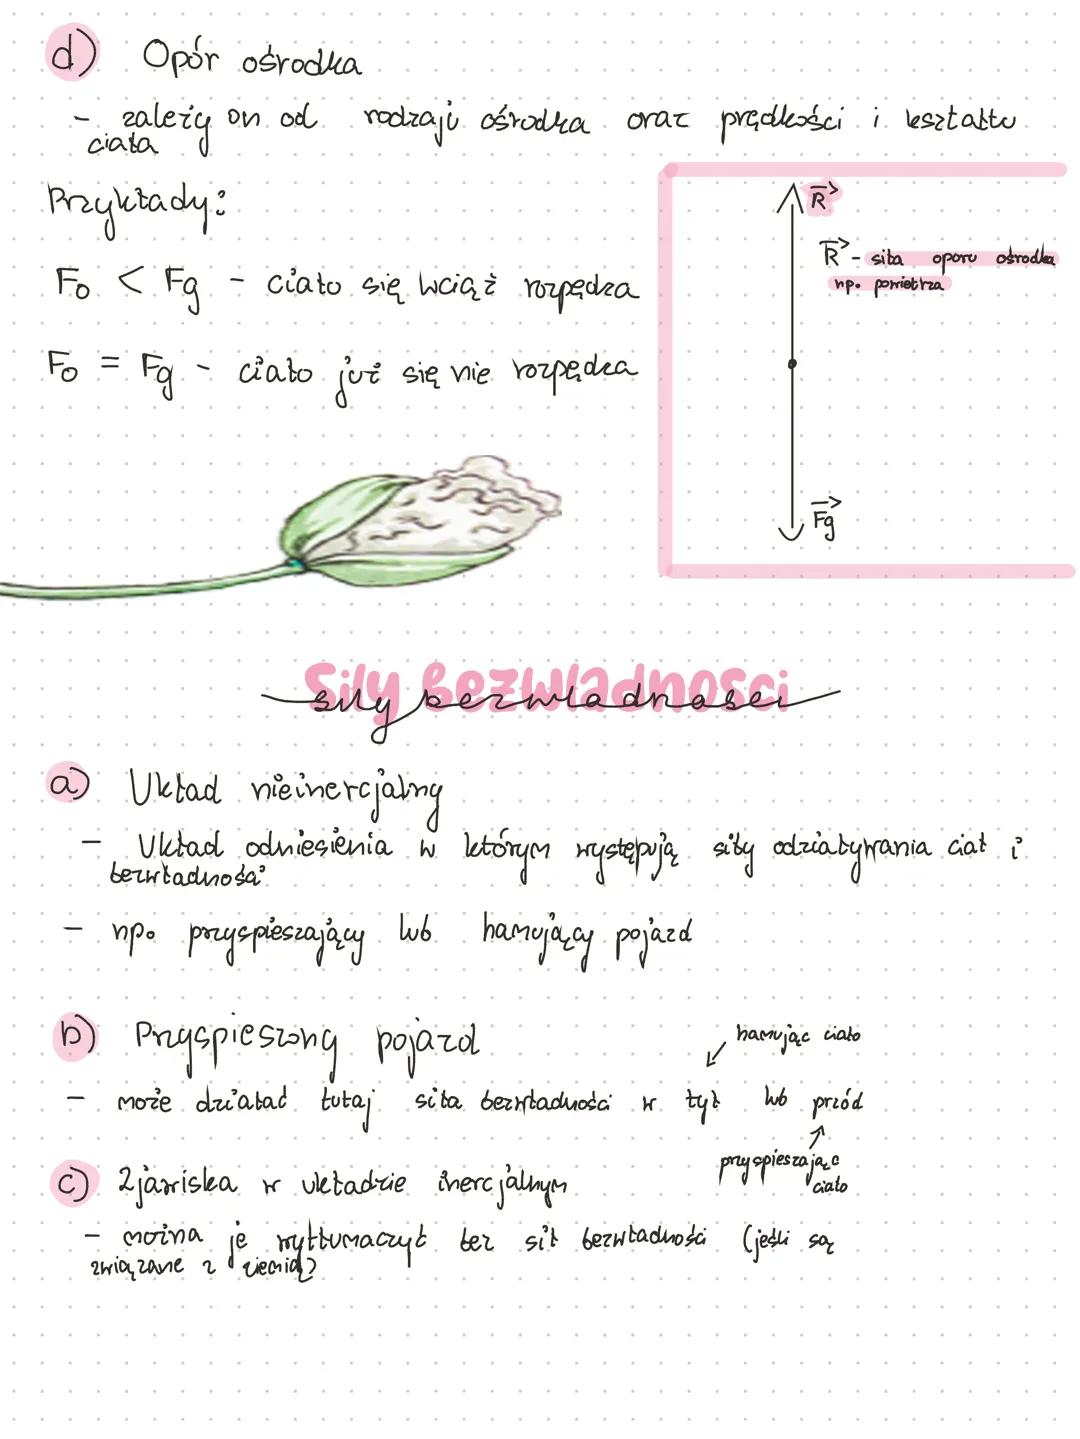 d) Opór ośrodka
- zależy on od rodzaju ośrodka oraz prędkości i kształtu
ciała
Przykłady:
Fo < Fg - ciało się wciąż rozpędza
Fo = Fg - ciało już się nie rozpędza
R
R - siła oporu ośrodka
np. powietrza
Fg
Siły bezwładności
siły bezwładności
a) Układ nieinercjalny
- Układ odniesienia w którym występują siły odziaływania ciał i
bezwładność
- np. przyspieszający lub hamujący pojazd
b) Przyspieszony pojazd
hamując ciało
- może działać tutaj siła bezwładności w tył lub przód
przyspieszając
ciało
c) Zjawiska w układzie inercjalnym
- można je wytłumaczyć bez sił bezwładności (jeśli są
związane z ziemią)